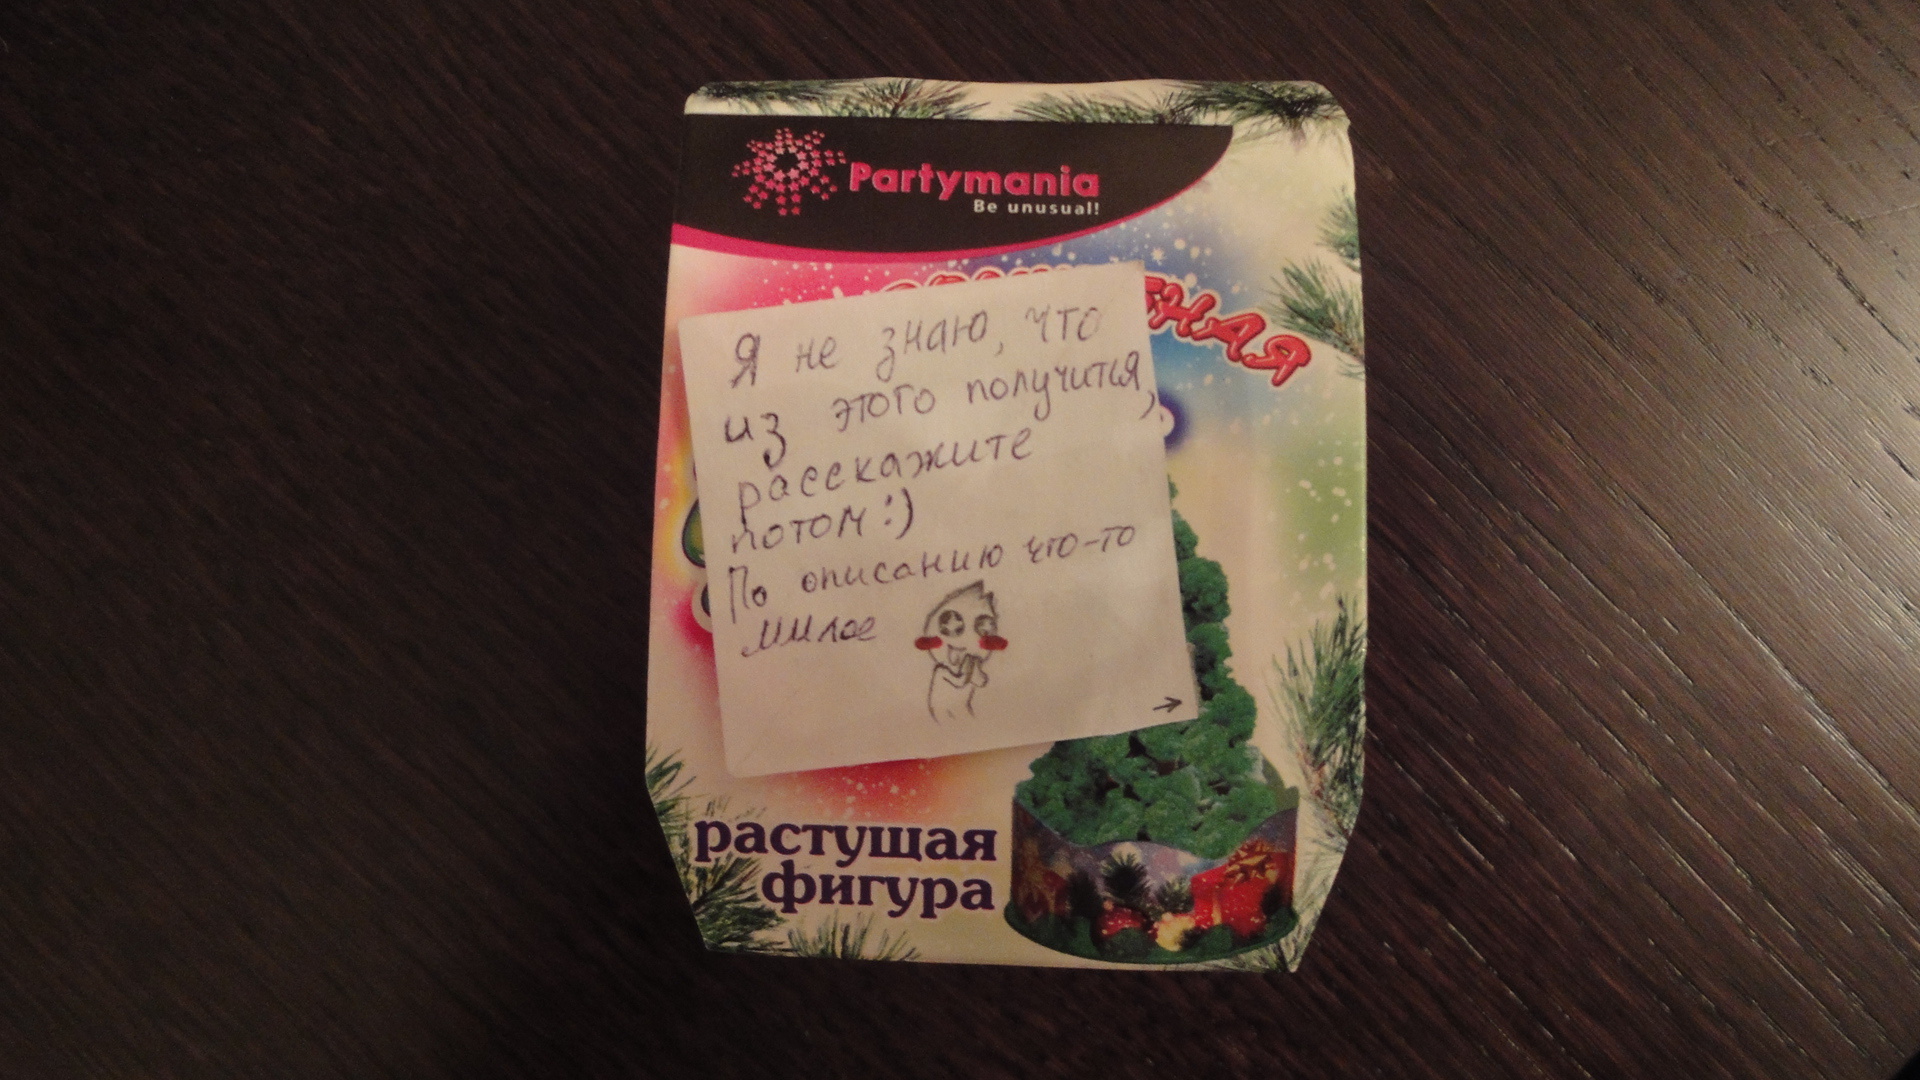 Partymania
Be unusual!
Я не знаю, что
из этого получится,
расскажите
потом :)
По описанию что-то
милое
→
растущая
фигура